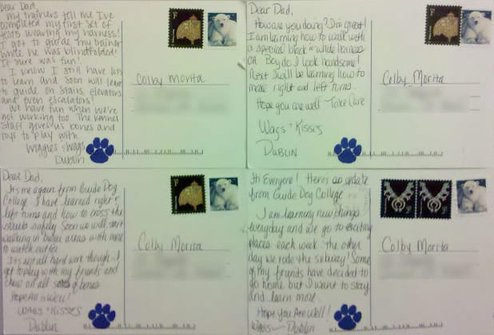 Dear Dad,
My trainers tell me I've
completed my first set of
wearing my harness!
I got to guide my trainer
while he was blindfolded!
It sure was fun!
I know I still have lots
to learn and soon will learn
to guide on stairs, elevators
and even escalators!
We have fun when we're
not working too. The kennel
staff gives us bones and
toys to play with.
Wiggles & Wags,
Dublin
Colby Morita
Dear Dad,
How are you doing? I'm great!
I am learning how to walk with
a special black & white harness
on. Boy do I look handsome!
Next I will be learning how to
make right and left turns.
Hope you are well - Take Care
Wags & Kisses
Dublin
Colby Morita
Dear Dad,
It's me again from Guide Dog
College. I have learned right &
left turns and how to cross the
streets safely. Soon we will start
working in busier areas with more
to watch out for.
It's not all hard work though. I
get to play with my friends and
chew on all sorts of bones.
Hope All is Well!
Wags & Kisses
Dublin
Colby Morita
Hi Everyone! Here's an update
from Guide Dog College.
I am learning new things
everyday and we go to exciting
places each week. The other
day we rode the subway! Some
of my friends have decided to
go home, but I want to stay
and learn more.
Hope You Are Well!
Wags - Dublin
Colby Morita